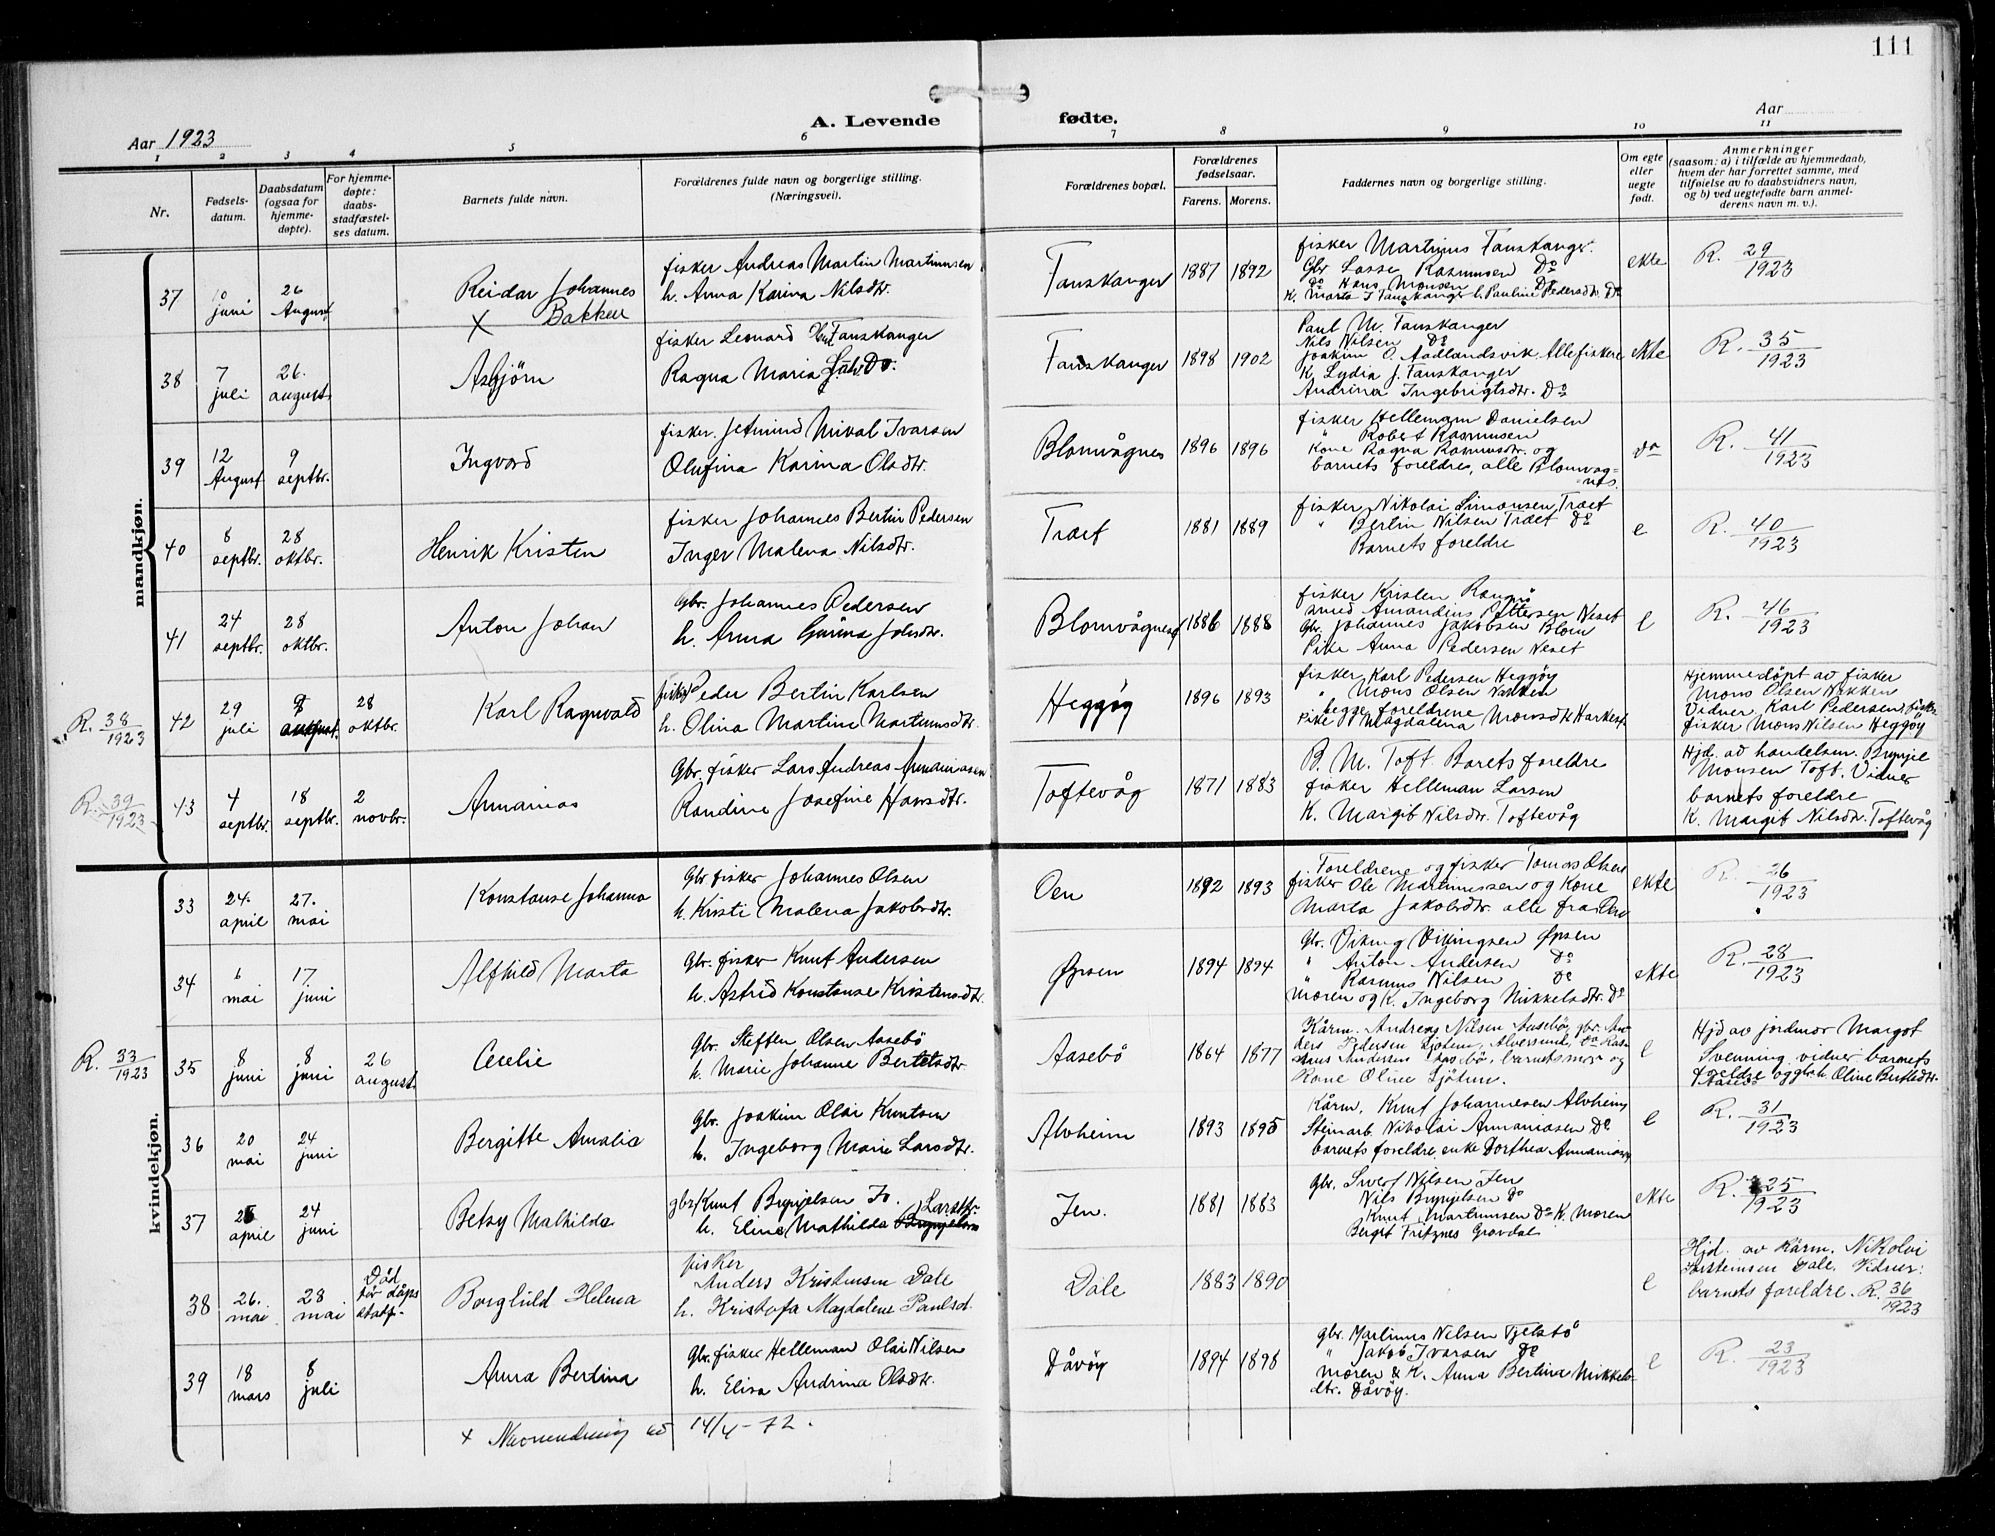 111
Aar 1923
A. Levende fødte.
Aar
1 2 3 4 5 6 7 8 9 10 11
Nr.
Fødsels-
datum.
Daabsdatum
(ogsaa for
hjemme-
døpte).
For hjemme-
døpte:
daabs-
stadfæstel-
ses datum.
Barnets fulde navn.
Forældrenes fulde navn og borgerlige stilling.
(Næringsvei).
Forældrenes bopæl.
Forældrenes
fødselsaar.
Farens. Morens.
Faddernes navn og borgerlige stilling.
Om egte
eller
uegte
født.
Anmerkninger
(saasom: a) i tilfælde av hjemmedaab,
hvem der har forrettet samme, med
tilføielse av to daabsvidners navn,
og b) ved uegtefødte barn anmel-
derens navn m. v.).
mandkjøn.
37
10
juni
26
August
Reidar Johannes
X Bakken
fisker Andreas Martin Martinusen
h. Anna Karina Nilsdtr.
Fanskanger
1887 1892
fisker Martinus Fanskanger.
Gbr Lasse Rasmusen Do
Do Hans Monsen Do
K. Marta J Fanskanger h. Pauline Pedersdtr. Do
ekte
R. 29/1923
38
7
juli
26.
august
Asbjörn
fisker Leonard Fanskanger
Ragna Maria Do.
Fanskanger
1898 1902
Paul M. Fanskanger
Nils Nilsen Do
Joakim O. Aadlandsvik. Alle fiskere
K Lydia J. Fanskanger
Andrina Ingebrigtsdtr. Do
ekte
R. 35/1923
39
12
August
9
septbr.
Ingvard
fisker. Mival Ivarsen
Olufina Karina Olsdtr.
Blomvågnes
1896 1896
fisker Hellemann Danielsen
" Robert Rasmusen
Kone Ragna Rasmusdtr. og
barnets foreldre, alle Blomvåg-
nes.
do
R. 41/1923
40
8
septbr.
28
oktbr.
Henrik Kristen
fisker Johannes Bertin Pedersen
Inger Malena Nilsdtr.
Træet
1881 1889
fisker Nikolai Simonsen, Træet
" Bertin Nilsen Træet Do
Barnets foreldre
e
R. 40/1923
41
24
septbr.
28
oktbr.
Anton Johan
Gbr. Johannes Pedersen
h. Anna Gurina Johsdtr.
Blomvågnes
1886 1888
fisker Kristen
smed Amandius Pettersen Neset
Gbr. Johannes Jakobsen Blom
Pike Anna Pedersen Neset
e
R. 46/1923
R. 38/1923
42
29
juli
9
august.
28
oktbr.
Karl Ragnvald
fisker Peder Bertin Karlsen
h. Olina Martine Martinusdtr.
Heggöy
1896 1893
fisker Karl Pedersen Heggöy
" Mons Olsen Nakken
begge foreldrene
Pike Magdalena Monsdtr Harkest.
Hjemmedöpt av fisker
Mons Olsen Nakken
Vidner, Karl Pedersen, fisker
fisker Mons Nilsen Heggöy
R. 39/1923
43
4
septbr.
18
septbr.
2
novbr.
Annanias
Gbr. fisker Lars Andreas Annaniasen
Randine Josefine Hansdtr.
Toftevåg
1871 1883
B. M. Toft. Barets foreldre
fisker Helleman Larsen
K. Margit Nilsdtr. Toftevåg
Hjd. av handelsm. Brynjel
Monsen Toft. Vidner
barnets foreldre
K. Margit Nilsdtr. Toftevåg
kvindekjøn.
33
24.
april
27.
mai
Konstanse Johanna
Gbr fisker Johannes Olsen
h. Kristi Malena Jakobsdtr.
Oen
1892 1893
Foreldrene og fisker Tomas Olsen
fisker Ole Martinussen og Kone
Marta Jakobsdtr. alle fra Oen
ekte
R. 26/1923
34
6
mai
17.
juni
Alfhild Marta
Gbr. fisker Knut Andersen
h. Astrid Konstanse Kristensdtr.
Øpsen
1894 1894
Gbr. Viking Vikingsen Øpsen
" Anton Andersen Do
" Rasmus Nilsen Do
Moren og K. Ingeborg Mikkelsdtr. Do
ekte
R. 28/1923
R. 33/1923
35
8
juni
8
juni
26
august.
Cecelie
Gbr. Steffen Olsen Aasebö
h. Marie Johanne Bertelsdtr
Aasebö
1864 1877
Kårm. Andreas Nilsen Aasebö, gbr. An-
ders Pedersen Sjötun, Alversund, Do Ras-
mus Andersen Aasebö, barnets mor og
Kone Oline Sjötun.
e
Hjd av jordmor Margot
Svenning. vidner barnets
foreldre og gbrk. Oline Bertelsdtr.
36
20
mai
24
juni
Bergitte Amalia
Gbr. Joakim Olai Knutsen
h. Ingeborg Marie Larsdtr.
Alvheim
1893 1895
Kårm. Knut Johannesen Alvheim
Steinarb. Nikolai Annaniasen Do
barnets foreldre, enke Dorthea Annaniasen
e
R. 31/1923
37
25
april
24
juni
Betsy Mathilda
gbr Knut Brynjelsen Io. Larsdtr.
h. Eline Mathilda Brynjelsen
Jen.
1881 1883
Gbr. Sivert Nilsen Jen
Nils Brynjelsen Do
Knut Martinusen Do K. Moren
Bergit Fritznes Gravdal
ekte
R. 25/1923
38
26.
mai
28
mai
Död
för dåps
statf.
Borghild Helena
fisker
Anders Kristensen Dale
h. Kristofa Magdalene Paulsd.
Dale
1883 1890
e
Hjd. av Kårm. Nikolai
Torsteinsen Dale. Vidner:
barnets foreldre. R. 36/1923
39
18
mars
8
juli
Anna Bertina
Gbr. fisker Helleman Olai Nilsen
h. Elisa Andrina Olsdtr.
Dåvöy
1894 1898
gbr. Martinus Nilsen Tjelstö
" Jakob Ivarsen Do
Moren & K. Anna Bertina Mikkels-
dtr. Dåvöy.
e
R. 23/1923
x Navneendring av 14/4-72.